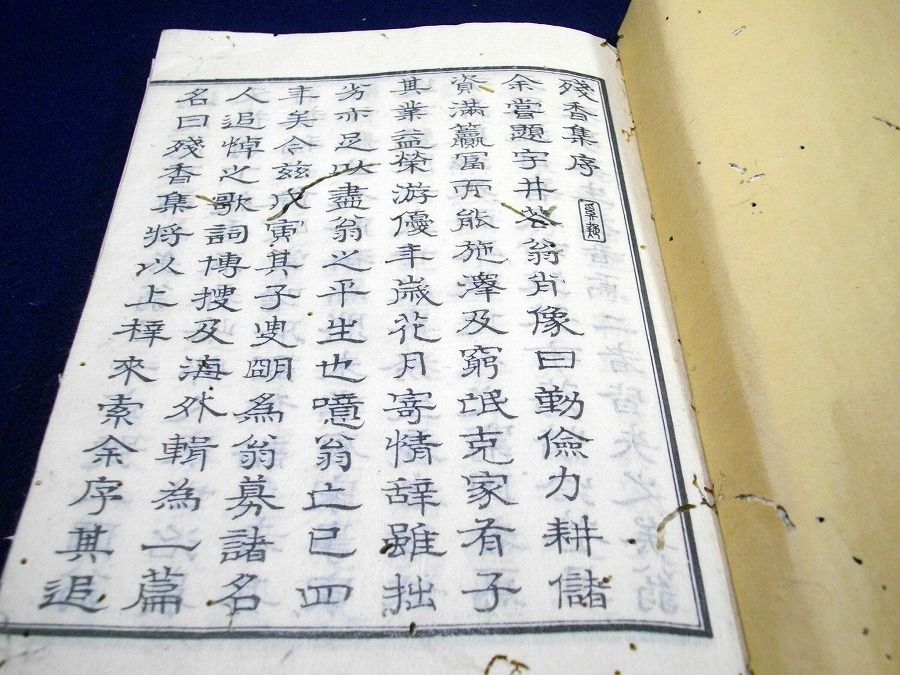 殘香集序
余嘗題宇井菭翁肖像曰勤儉力耕儲
資滿籯富而能施澤及窮氓克家有子
其業益榮游優年歲花月寄情辭雖拙
劣亦足以盡翁之平生也噫翁亡已四
年矣今茲戊寅其子叟朙為翁募諸名
人追悼之歌詞博搜及海外輯為一篇
名曰殘香集將以上梓來索余序其追